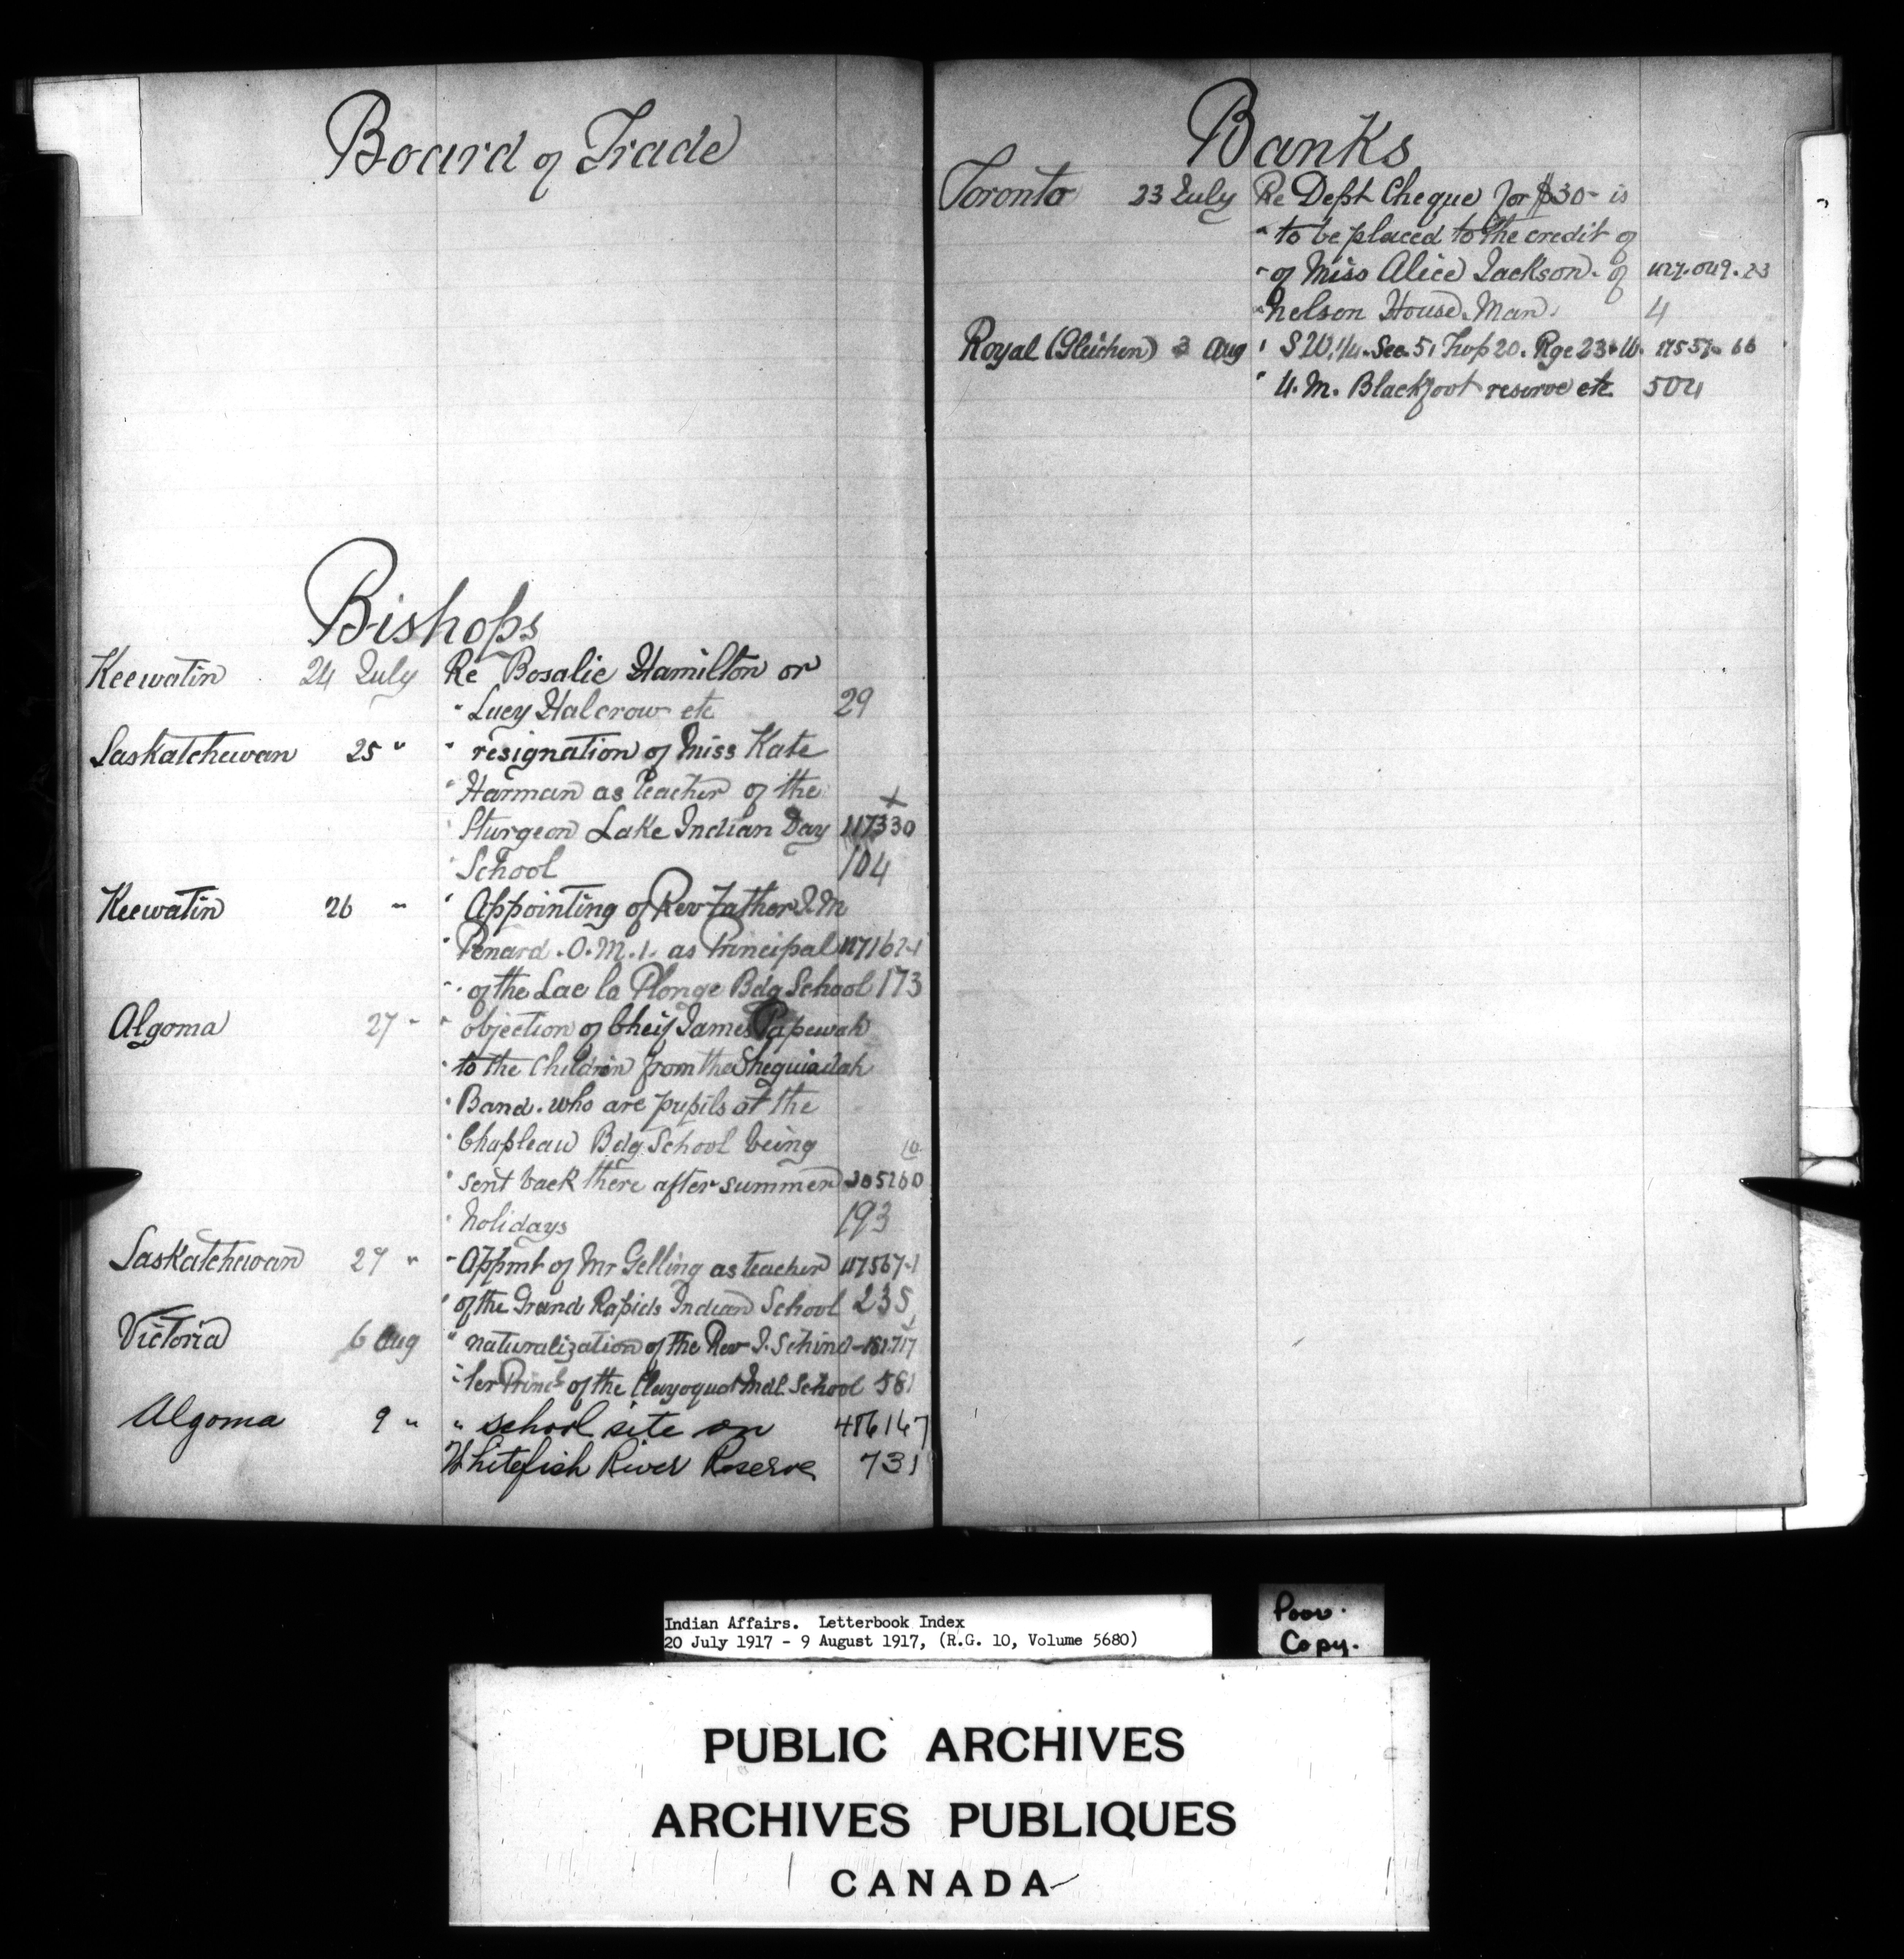 Board of Trade
Bishops
Keewatin 24 July Re Rosalie Hamilton or
" Lucy Halcrow etc 29
Saskatchewan 25 " " resignation of Miss Kate
" Harman as teacher of the x
" Sturgeon Lake Indian Day 117330
" School 104
Keewatin 26 " " Appointing of Rev Father J.M
" Penard. O.M.I. as Principal
" of the Lac la Plonge Bdg School 173
Algoma 27 " " objection of Cheif James Papewah
" to the Children from the Sheguiadah
" Band. who are pupils at the
" Chapleau Bdg School being
" sent back there after summer
" holidays 193
Saskatchewan 27 " " Appmt of Mr Gelling as teacher 117567-1
" of the Grand Rapids Indian School 235
Victoria 6 Aug " naturalization of the Rev J. Schind-
" ler Princ of the Clayoquot Indl. School 581
Algoma 9 " " school site on
Whitefish River Reserve 731
Banks
Toronto 23 July Re Dept Cheque for $30- is
" to be placed to the credit of
" of Miss Alice Jackson. of
" Nelson House. Man. 4
Royal (Gleichen) 3 Aug " S W. 1/4. Sec. 5, Twp 20. Rge 23. W.
" 4. M. Blackfoot reserve etc. 504
Indian Affairs. Letterbook Index
20 July 1917 - 9 August 1917, (R.G. 10, Volume 5680)
Poor.
Copy.
PUBLIC ARCHIVES
ARCHIVES PUBLIQUES
CANADA